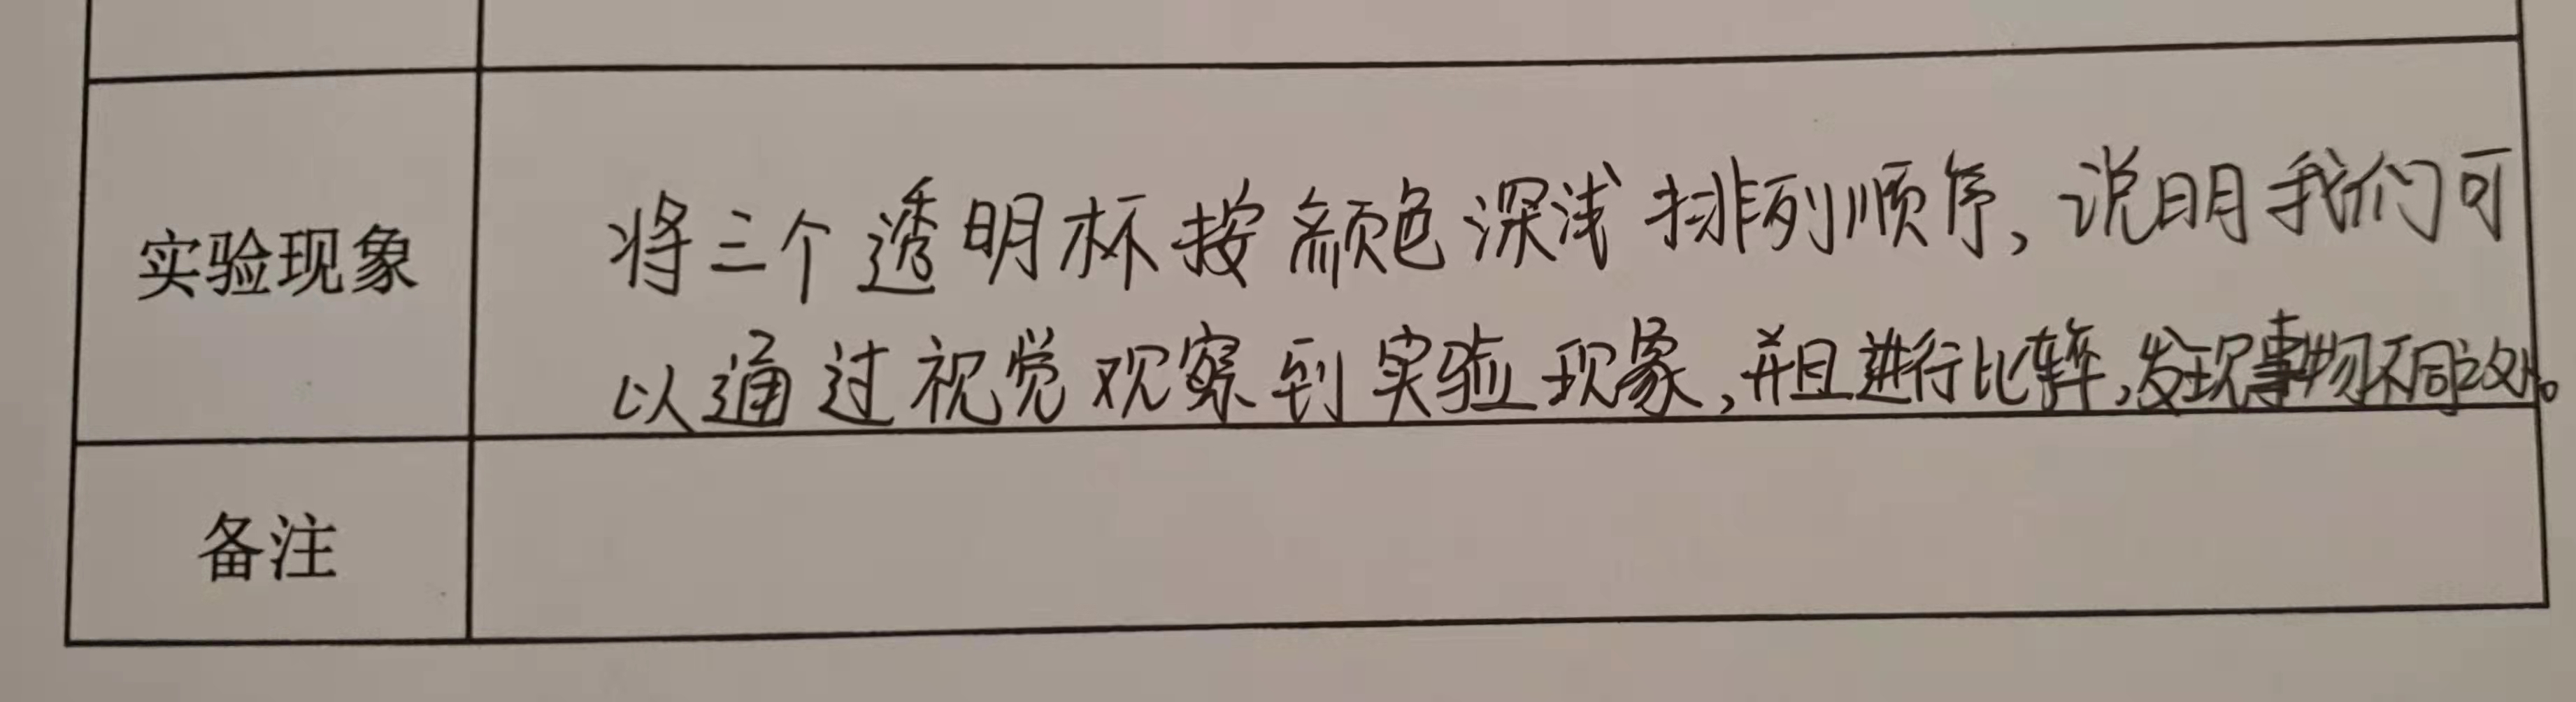 实验现象
将三个透明杯按颜色深浅排列顺序,说明我们可
以通过视觉观察到实验现象,并且进行比较,发现事物不同之处。
备注